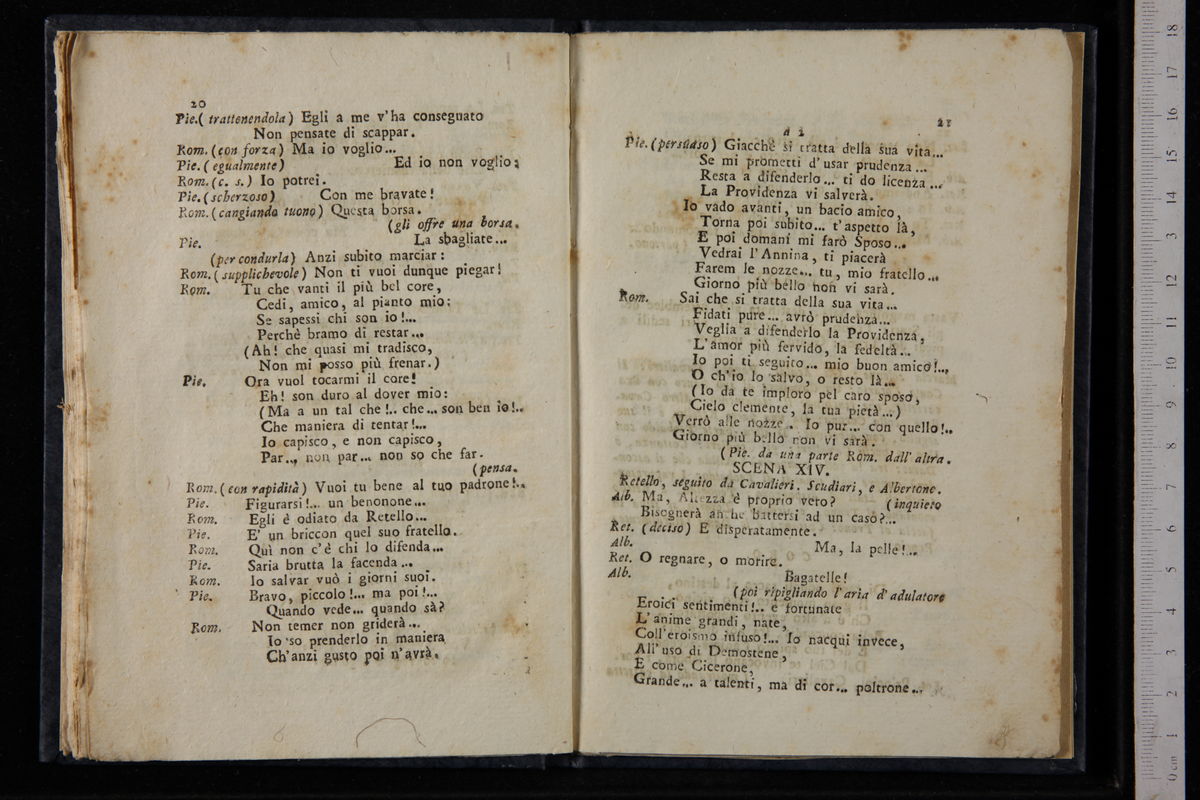 20
Pie. ( trattenendola ) Egli a me v'ha consegnato
Non pensate di scappar.
Rom. ( con forza ) Ma io voglio...
Pie. ( egualmente ) Ed io non voglio;
Rom. ( c. s. ) Io potrei.
Pie. ( scherzoso ) Con me bravate!
Rom. ( cangiando tuono ) Questa borsa.
( gli offre una borsa.
Pie. La sbagliate...
( per condurla ) Anzi subito marciar:
Rom. ( supplichevole ) Non ti vuoi dunque piegar!
Rom. Tu che vanti il più bel core,
Cedi, amico, al pianto mio:
Se sapessi chi son io!...
Perchè bramo di restar...
(Ah! che quasi mi tradisco,
Non mi posso più frenar.)
Pie. Ora vuol tocarmi il core!
Eh! son duro al dover mio:
(Ma a un tal che!.. che... son ben io!..
Che maniera di tentar!...
Io capisco, e non capisco,
Par... non par... non so che far.
( pensa.
Rom. ( con rapidità ) Vuoi tu bene al tuo padrone!..
Pie. Figurarsi!... un benonone...
Rom. Egli è odiato da Retello...
Pie. E' un briccon quel suo fratello.
Rom. Quì non c'è chi lo difenda...
Pie. Saria brutta la facenda...
Rom. Io salvar vuò i giorni suoi.
Pie. Bravo, piccolo!... ma poi!...
Quando vede... quando sà?
Rom. Non temer non griderà...
Io so prenderlo in maniera
Ch'anzi gusto poi n'avrà.
21
a 2
Pie. ( persuaso ) Giacchè si tratta della sua vita...
Se mi prometti d'usar prudenza...
Resta a difenderlo... ti do licenza...
La Providenza vi salverà.
Io vado avanti, un bacio amico,
Torna poi subito... t'aspetto là,
E poi domani mi farò Sposo...
Vedrai l'Annina, ti piacerà
Farem le nozze... tu, mio fratello...
Giorno più bello non vi sarà.
Rom. Sai che si tratta della sua vita...
Fidati pure... avrò prudenza...
Veglia a difenderlo la Providenza,
L'amor più fervido, la fedeltà...
Io poi ti seguito... mio buon amico!...
O ch'io lo salvo, o resto là...
(Io da te imploro pel caro sposo,
Cielo clemente, la tua pietà...)
Verrò alle nozze.. Io pur... con quello!..
Giorno più bello non vi sarà.
( Pie. da una parte Rom. dall'altra.
SCENA XIV.
Retello, seguito da Cavalieri. Scudiari, e Albertone.
Alb. Ma, Altezza è proprio vero? ( inquieto
Bisognerà an he battersi ad un caso?...
Ret. ( deciso ) E disperatamente.
Alb. Ma, la pelle!...
Ret. O regnare, o morire.
Alb. Bagatelle!
( poi ripigliando l'aria d'adulatore
Eroici sentimenti!.. e fortunate
L'anime grandi, nate,
Coll'eroismo infuso!... Io nacqui invece,
All'uso di Demostene,
E come Cicerone,
Grande... a talenti, ma di cor... poltrone...
0 cm 1 2 3 4 5 6 7 8 9 10 11 12 13 14 15 16 17 18